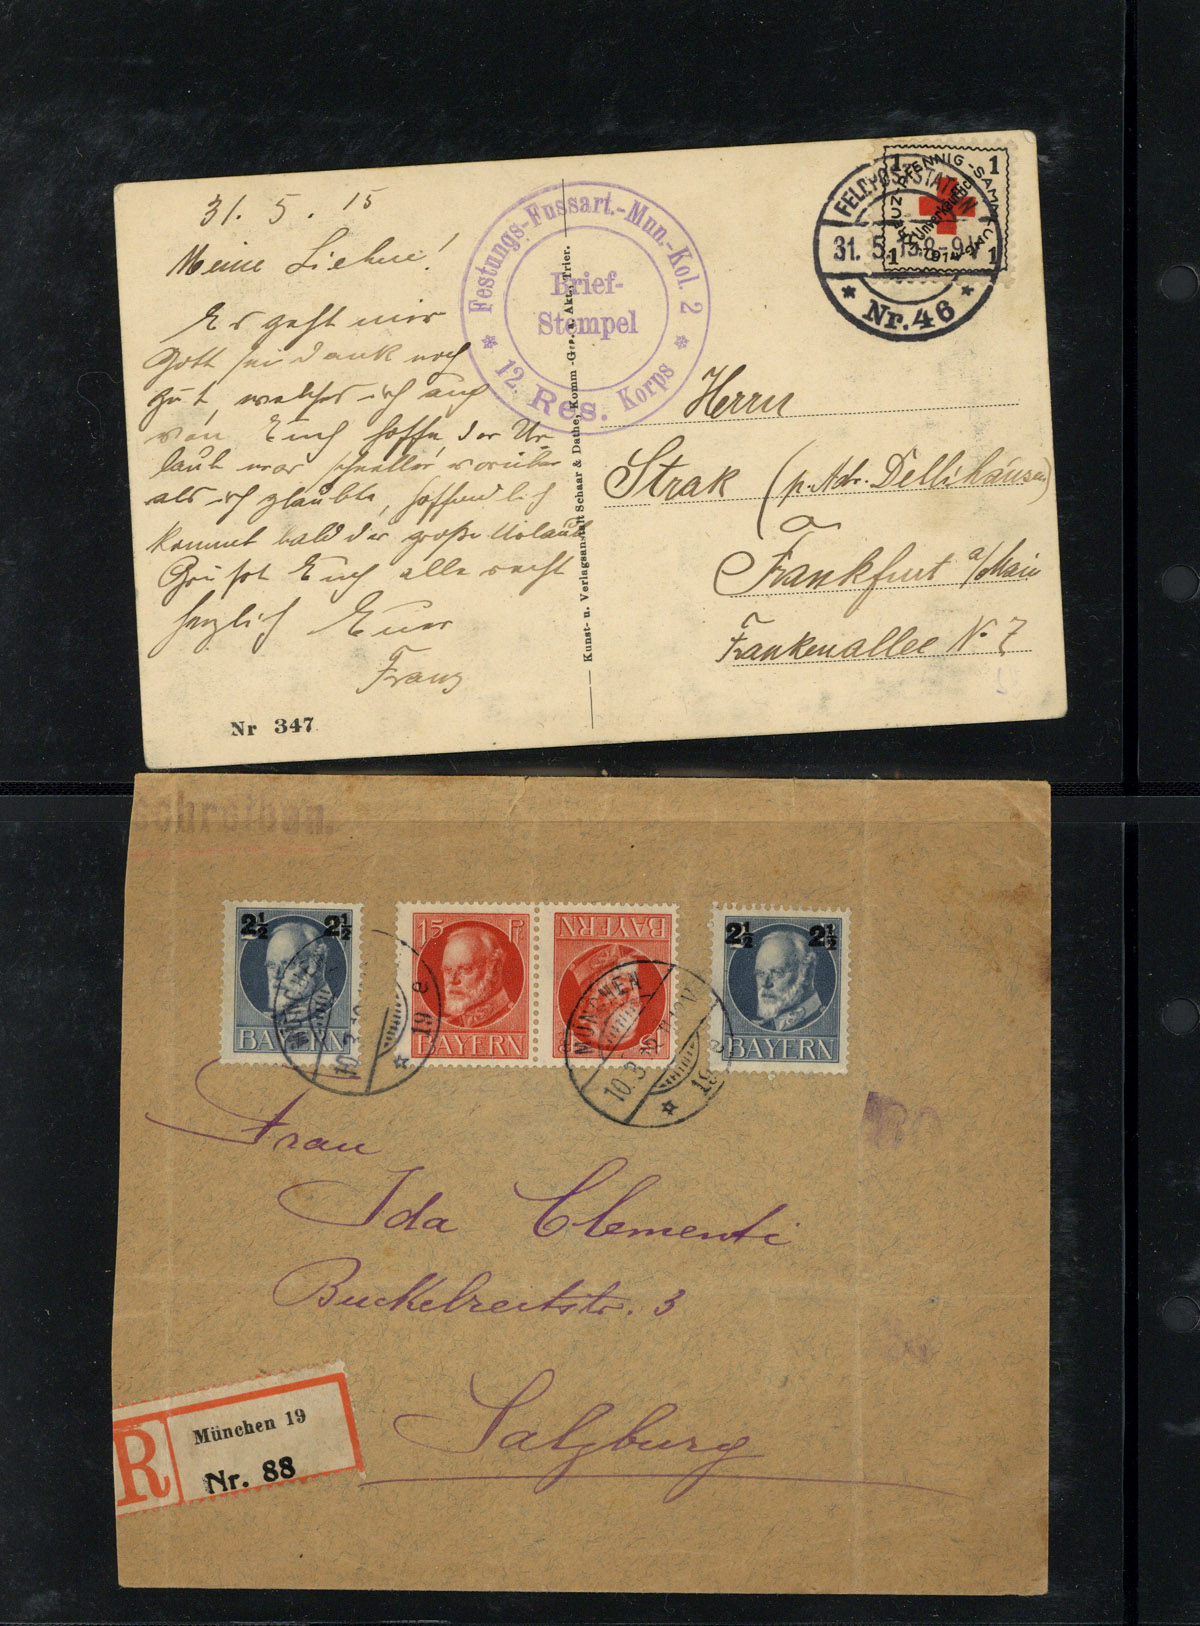 31. 5. 15
Meine Lieben!
Es geht mir
Gott sei Dank noch
gut, welches ich auch
von Euch hoffe, der Ur-
laub war schneller vorüber
als ich glaubte, hoffendlich
kommt bald der große Urlaub
Grüßt Euch alle recht
herzlich Euer
Franz
Nr 347
Festungs-Fussart.-Mun.-Kol. 2
Brief-
Stempel
* 12. Res. Korps *
Kunst- u. Verlagsanstalt Schaar & Dathe, Komm.-Ges. a. Akt., Trier.
FELDPOSTSTATION
31. 5. 15 8-9 V
* Nr. 46 *
1 1
KREUZ-PFENNIG-SAMMLUNG
Unverkäuflich
1 1
Herrn
Strak (p. Adr. Dellihausen)
Frankfurt a/Main
Frankenallee No 7
schreiben.
2½ 2½
BAYERN
15 Pf
BAYERN
BAYERN
2½ 2½
BAYERN
MÜNCHEN
10. 3.
* 19 e
MÜNCHEN
10. 3.
* 19 e
Frau
Ida Clementi
Buckelreitstr. 3
Salzburg
R
München 19
Nr. 88